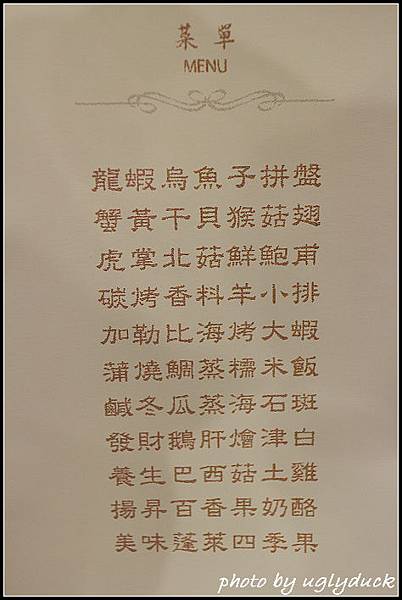 菜單
MENU
龍蝦烏魚子拼盤
蟹黃干貝猴菇翅
虎掌北菇鮮鮑甫
碳烤香料羊小排
加勒比海烤大蝦
蒲燒鯛蒸糯米飯
鹹冬瓜蒸海石斑
發財鵝肝燴津白
養生巴西菇土雞
揚昇百香果奶酪
美味蓬萊四季果
photo by uglyduck